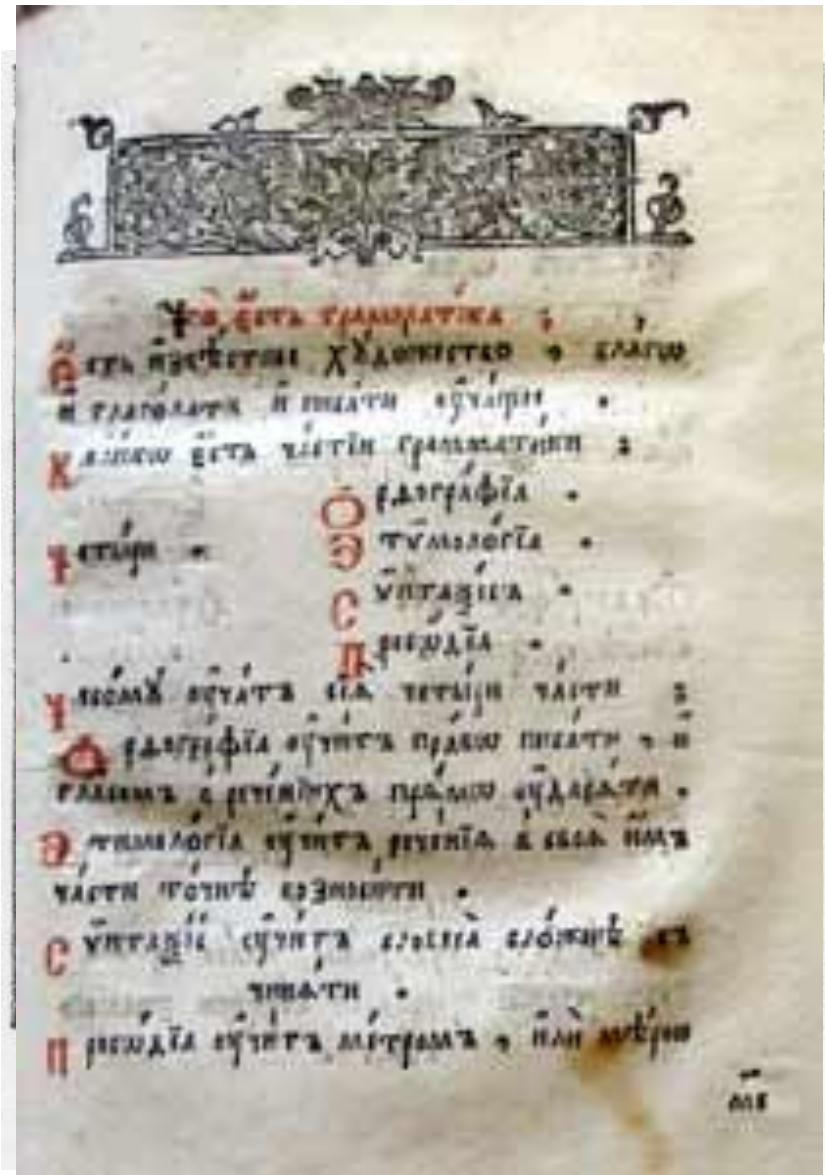 Что̀ є҆́сть грамма́тїка ;
Є҆́сть и҆звѣ́стное хꙋдо́жество , бла́гѡ
и҆ глаго́лати и҆ писа́ти ᲂу҆ча́щее .
Коли́кѡ є҆́сть часті́й грамма́тїки ;
Ѻ҆рѳогра́фїа .
Четы́ри . Э҆тѷмоло́гїа .
Сѵ́нтаѯїсъ .
Просѡ́дїа .
Чесомꙋ̀ ᲂу҆ча́тъ сїѧ̑ четы́ри ча̑сти ;
Ѻ҆рѳогра́фїа ᲂу҆чи́тъ пра́вѡ писа́ти , и҆
гла́сомъ в̾ рече́нїихъ прѧ́мѡ ᲂу҆дарѧ́ти .
Э҆тимоло́гїа ᲂу҆чи́тъ рече́нїѧ в̾ своѧ̑ и҆̀мъ
ча̑сти то́чнѣ возноси́ти .
Сѵ́нтаѯїс ᲂу҆чи́тъ словеса̀ сло́жнѣ съ
чинѧ́ти .
Просѡ́дїа ᲂу҆чи́тъ ме́тромъ , и҆лѝ мѣ́рою